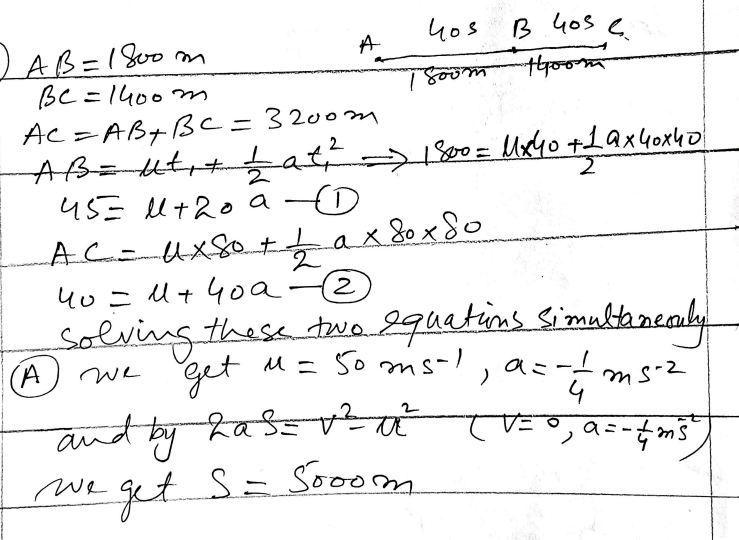 A 40s B 40s C
1800m 1400m
AB = 1800 m
BC = 1400 m
AC = AB + BC = 3200 m
AB = ut₁ + 1/2 at₁² ⇒ 1800 = u×40 + 1/2 a×40×40
45 = u + 20 a — ①
AC = u×80 + 1/2 a × 80 × 80
40 = u + 40a — ②
solving these two equations simultaneously
(A) we get u = 50 ms⁻¹, a = -1/4 ms⁻²
and by 2aS = v² - u² (V = 0, a = -1/4 ms⁻²)
we get S = 5000m